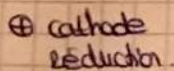 ⊕ cathode
reduction.